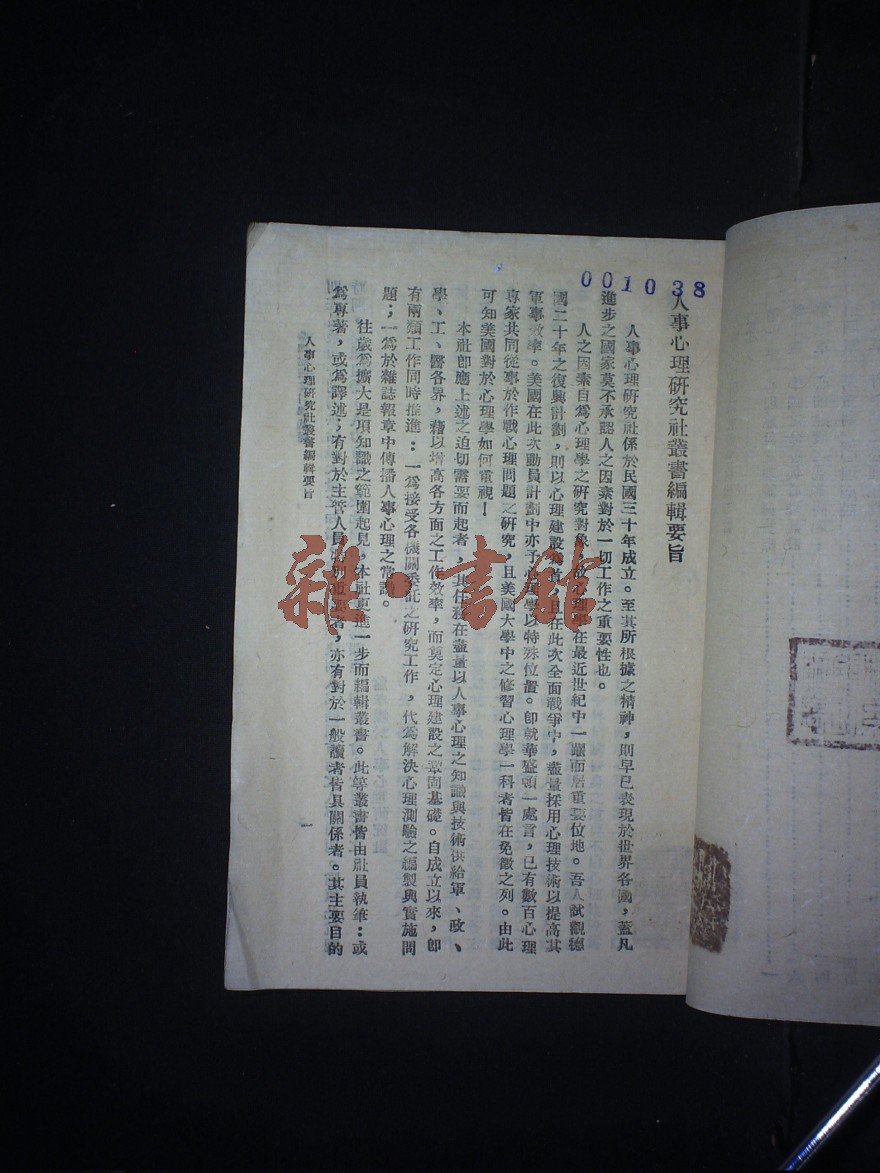 001038
人事心理研究社叢書編輯要旨
人事心理研究社係於民國三十年成立。至其所根據之精神，則早已表現於世界各國，蓋凡
進步之國家莫不承認人之因素對於一切工作之重要性也。
人之因素自爲心理學之研究對象，故心理學在最近世紀中一躍而居重要位地。吾人試觀德
國二十年之復興計劃，則以心理建設爲首，且在此次全面戰爭中，盡量採用心理技術以提高其
軍事效率。美國在此次動員計劃中亦予心理學以特殊位置。卽就華盛頓一處言，已有數百心理
專家共同從事於作戰心理問題之研究，且美國大學中之修習心理學一科者皆在免徵之列。由此
可知美國對於心理學如何重視！
本社卽應上述之迫切需要而起者，其任務在盡量以人事心理之知識與技術供給軍、政、
學、工、醫各界，藉以增高各方面之工作效率，而奠定心理建設之鞏固基礎。自成立以來，卽
有兩類工作同時推進：一爲接受各機關委託之研究工作，代爲解決心理測驗之編製與實施問
題；一爲於雜誌報章中傳播人事心理之常識。
往歲爲擴大是項知識之範圍起見，本社更進一步而編輯叢書。此等叢書皆由社員執筆：或
爲專著，或爲譯述；有對於主管人員特別重要者，亦有對於一般讀者皆具關係者。其主要目的
人事心理研究社叢書編輯要旨
一
雜·書館